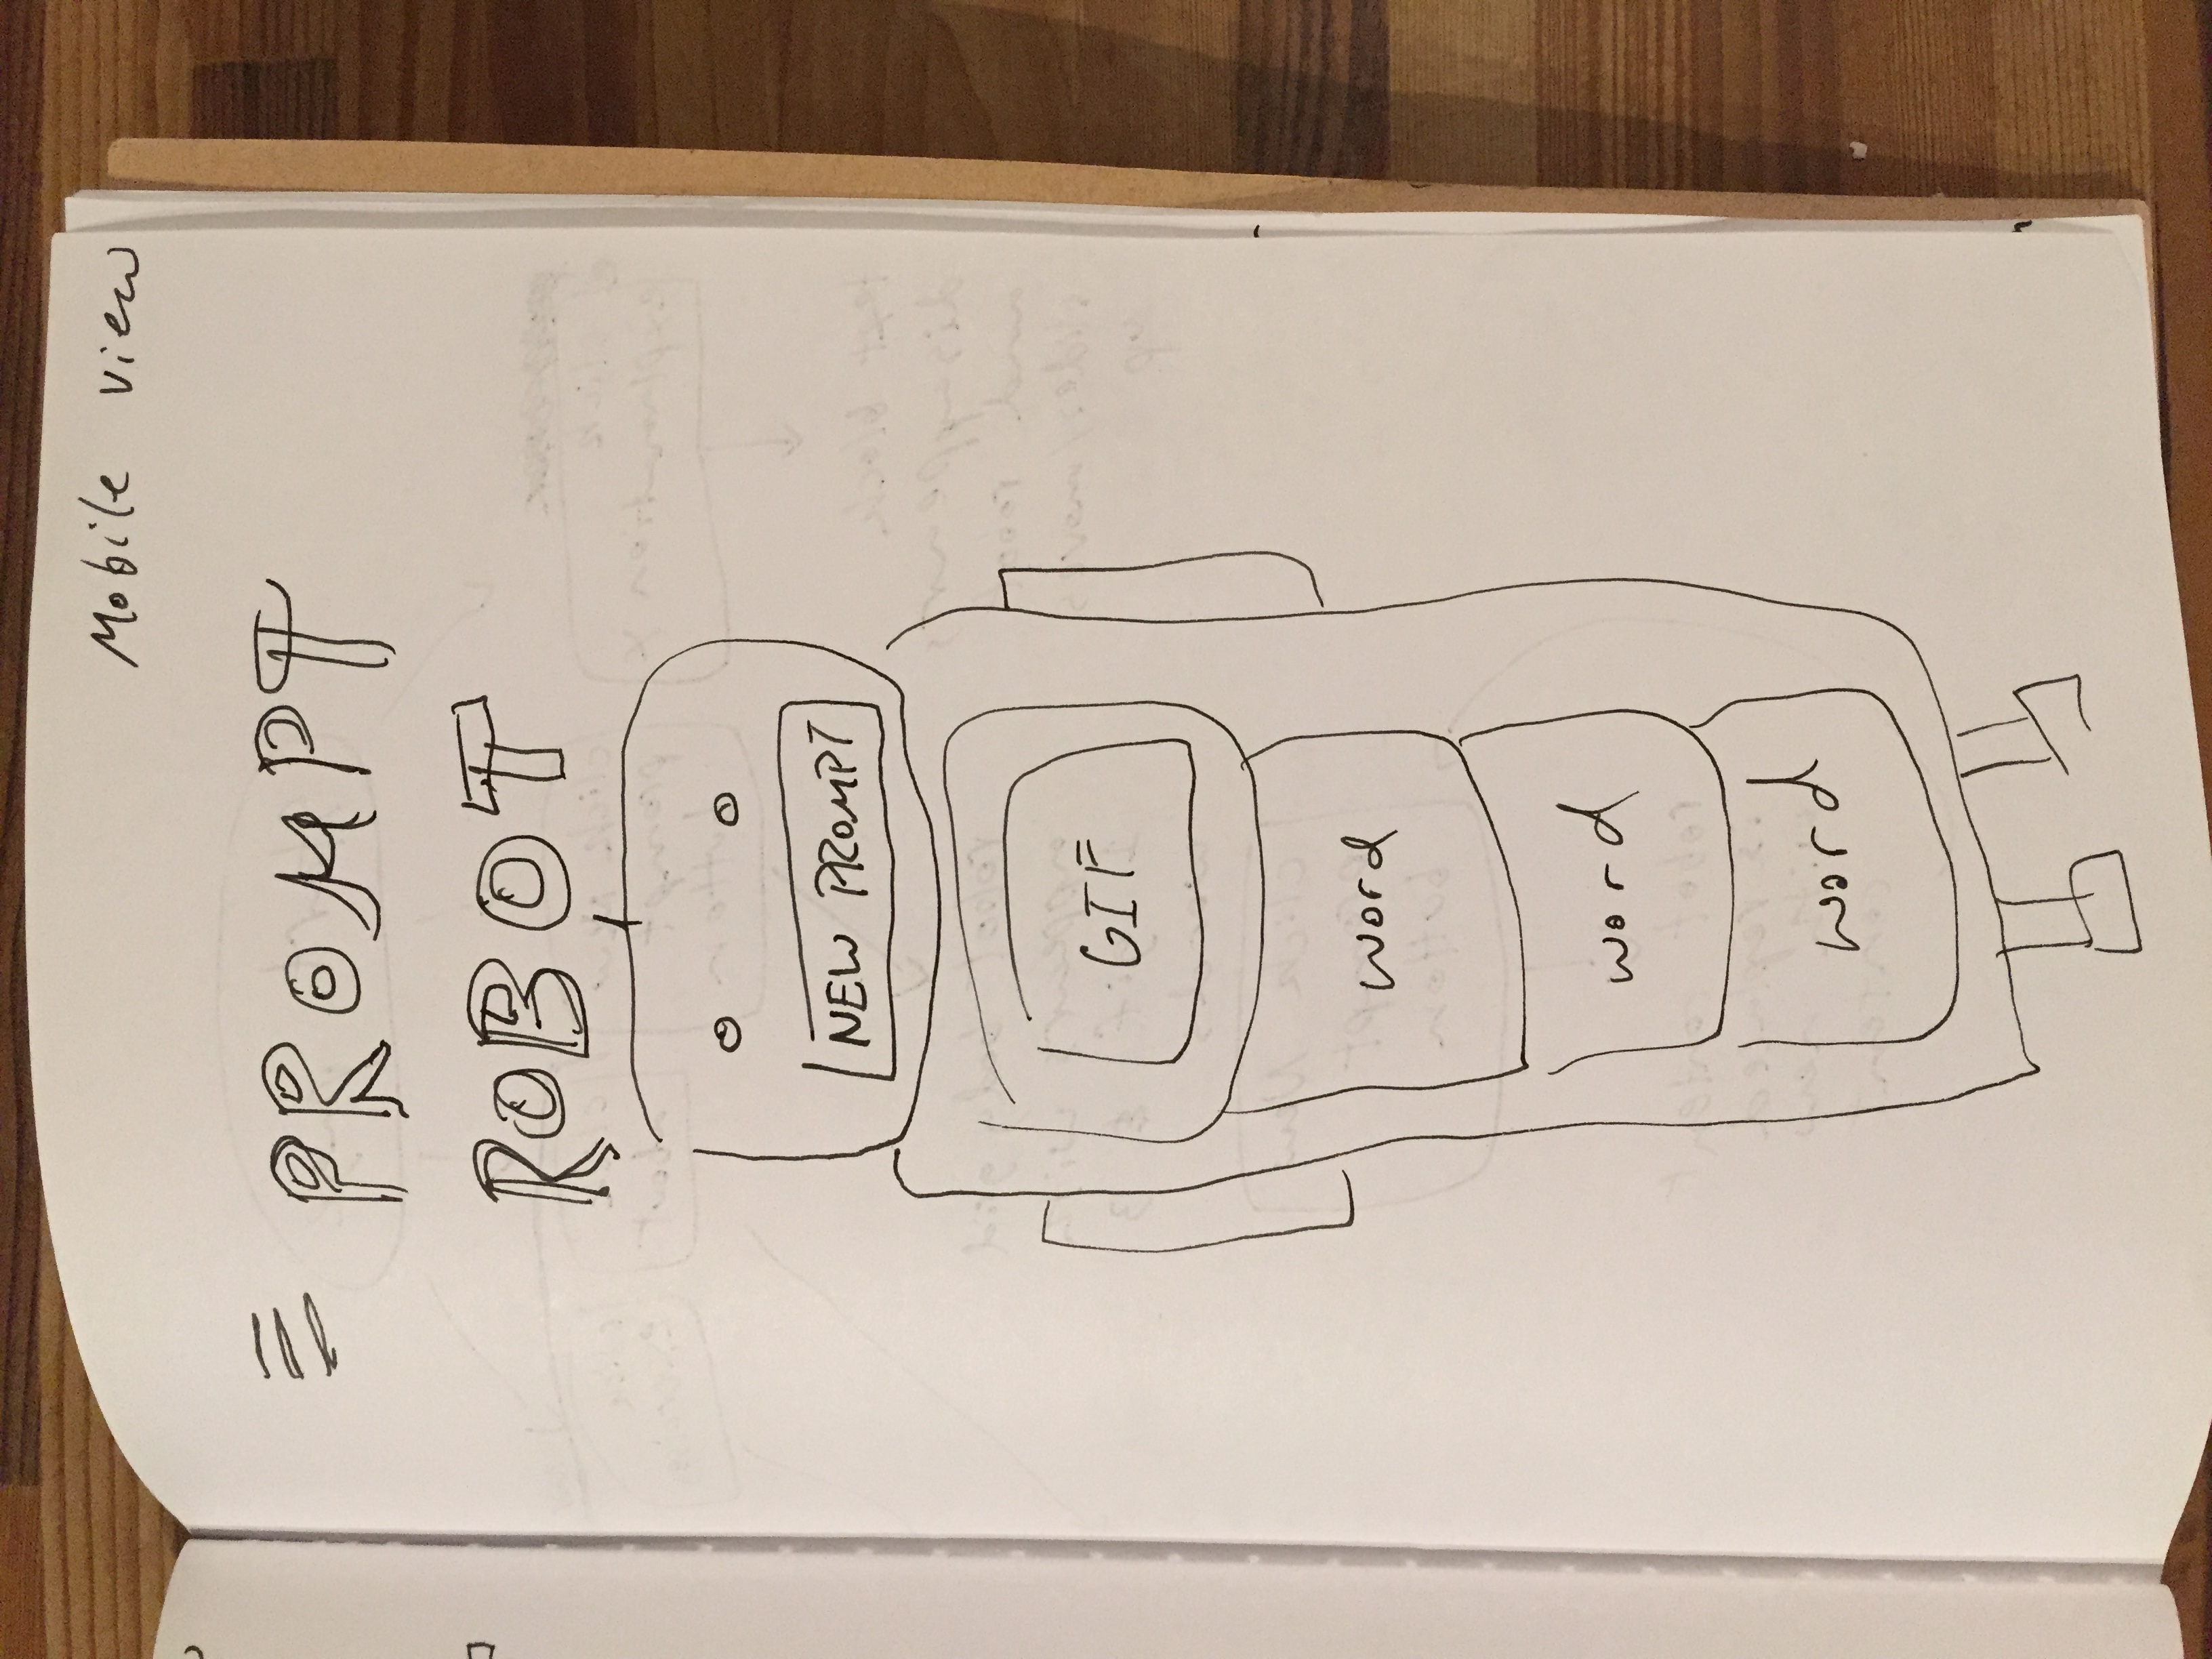 Mobile view
PROMPT
ROBOT
NEW PROMPT
GIF
word
word
word